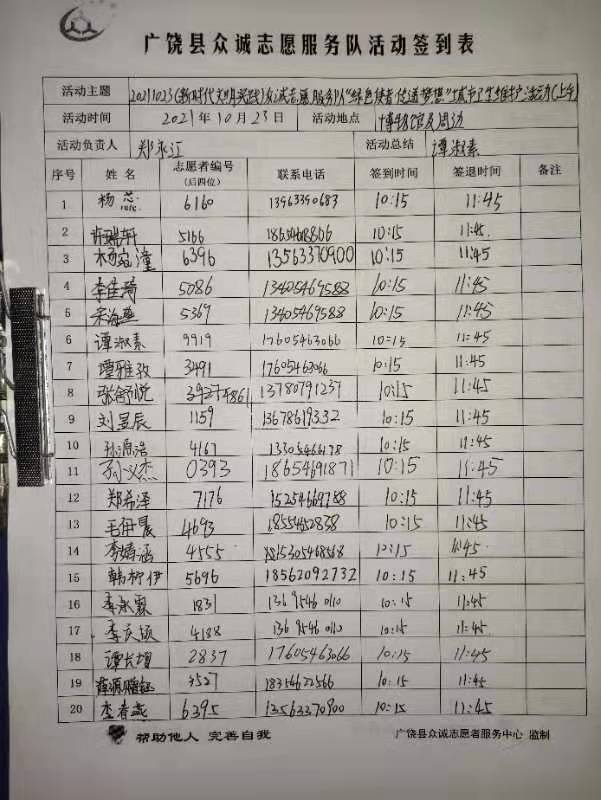 广饶县众诚志愿服务队活动签到表
活动主题 20211023(新时代文明实践)众诚志愿服务队"绿色使者 传递梦想"城市卫生维护活动(上午)
活动时间 2021年10月23日 活动地点 博物馆及周边
活动负责人 郑永江 活动总结 谭淑素
序号 姓名 志愿者编号(后四位) 联系电话 签到时间 签退时间 备注
1 杨蕊 6160 13963390683 10:15 11:45
2 许瑞轩 5166 10:15 11:45
3 6396 13563370900 10:15 11:45
4 李佳琦 5086 13405469588 10:15 11:45
5 宋海燕 5369 13405469588 10:15 11:45
6 谭淑素 9919 17605463066 10:15 11:45
7 3491 17605463066 10:15 11:45
8 张舒悦 13780791237 10:15 11:45
9 刘昱辰 1159 13678619332 10:15 11:45
10 孙源浩 4167 13305466178 10:15 11:45
11 孙义杰 0393 18654691871 10:15 11:45
12 郑希泽 7176 15254669788 10:15 11:45
13 毛伊晨 4693 18554652838 10:15 11:45
14 李婧涵 4555 11:45
15 韩柳伊 5696 18562092732 10:15 11:45
16 李承霖 1831 136 9546 0110 10:15 11:45
17 4188 136 9546 0110 10:15 11:45
18 谭长增 2837 17605463066 10:15 11:45
19 3527 18354622566 10:15 11:45
20 李春燕 6395 13563370900 10:15 11:45
帮助他人 完善自我 广饶县众诚志愿者服务中心 监制